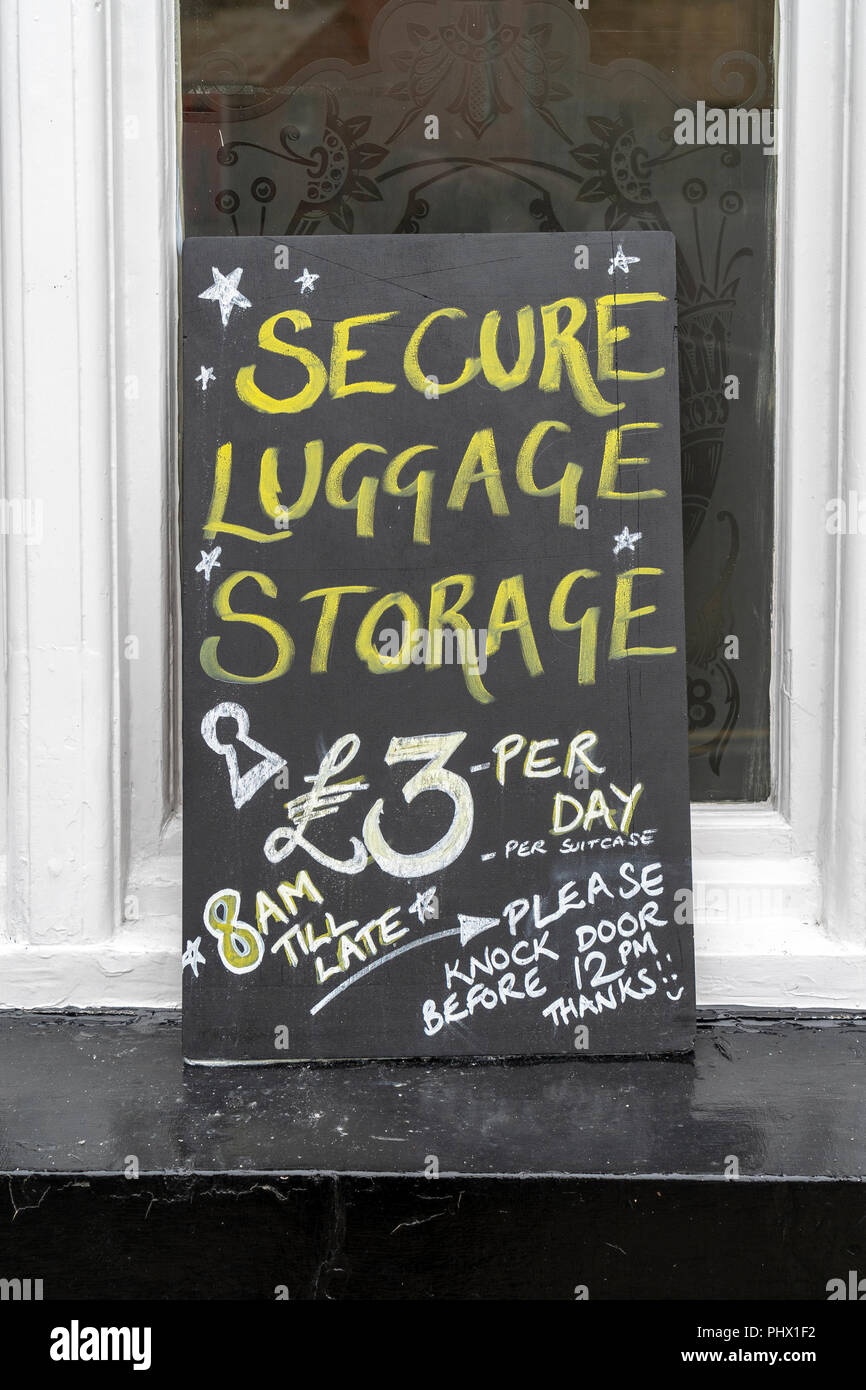 SECURE
LUGGAGE
STORAGE
£3 - PER
DAY
- PER SUITCASE
8AM
TILL
LATE
PLEASE
KNOCK DOOR
BEFORE 12PM
THANKS!!
alamy
Image ID: PHX1F2
www.alamy.com